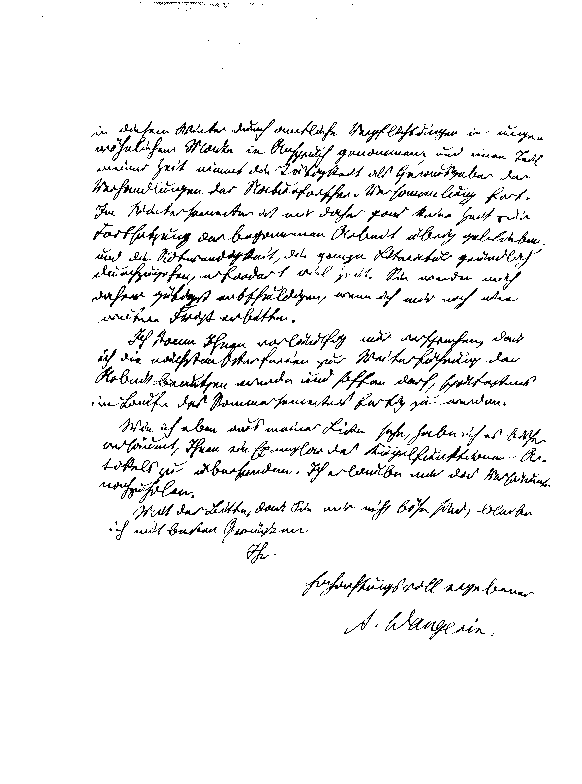 in diesem Winter durch amtliche Verpflichtungen in unge-
wöhnlichem Masse in Anspruch genommen, und einen Teil
meiner Zeit nimmt die Tätigkeit als Herausgeber der
Verhandlungen der Naturforscher-Versammlung fort.
Im Wintersemester ist mir daher gar keine Zeit für die
Fortsetzung der begonnenen Arbeit übrig geblieben,
und die Notwendigkeit, die ganze Literatur gründlich
durchzugehen, erfordert viel Zeit. Sie werden mich
daher gütigst entschuldigen, wenn ich mir noch eine
weitere Frist erbitte.
Ich kann Ihnen vorläufig nur versprechen, dass
ich die nächsten Osterferien zur Weiterführung der
Arbeit benutzen werde und hoffen darf, spätestens
im Laufe des Sommersemesters fertig zu werden.
Wie ich eben aus meiner Liste sehe, habe ich es bisher
versäumt, Ihnen ein Exemplar des Kugelfunktionen-Ar-
tikels zu übersenden. Ich erlaube mir das Versäumte
nachzuholen.
Mit der Bitte, dass Sie mir nicht böse sind, bleibe
ich mit besten Grüssen
Ihr
hochachtungsvoll ergebener
A. Wangerin.